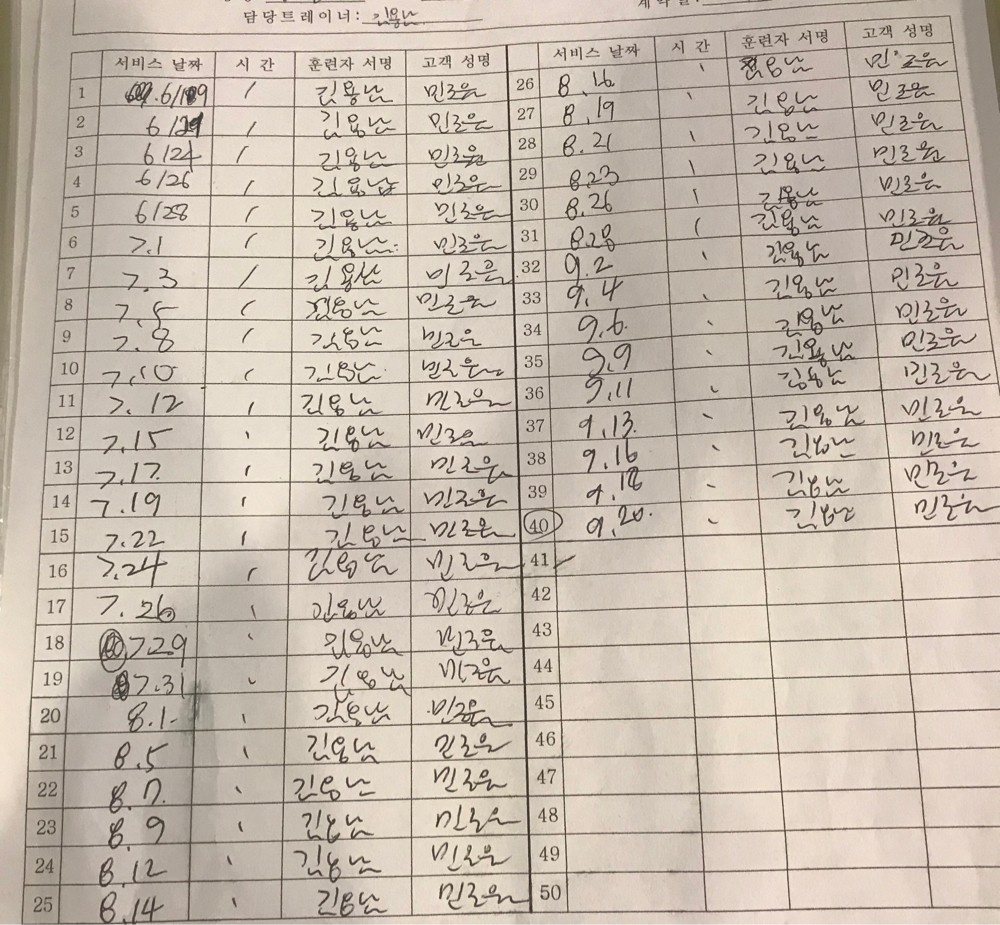 담당트레이너: 김용난
서비스 날짜 시 간 훈련자 서명 고객 성명
1 6/19 / 김용난 민조은
2 6/21 / 김용난 민조은
3 6/24 / 김용난 민조은
4 6/26 / 김용난 민조은
5 6/28 / 김용난 민조은
6 7.1 / 김용난 민조은
7 7.3 / 김용난 민조은
8 7.5 / 김용난 민조은
9 7.8 / 김용난 민조은
10 7.10 / 김용난 민조은
11 7.12 / 김용난 민조은
12 7.15 / 김용난 민조은
13 7.17. / 김용난 민조은
14 7.19 / 김용난 민조은
15 7.22 / 김용난 민조은
16 7.24 / 김용난 민조은
17 7.26 / 김용난 민조은
18 7.29 / 김용난 민조은
19 7.31 / 김용난 민조은
20 8.1. / 김용난 민조은
21 8.5 / 김용난 민조은
22 8.7. / 김용난 민조은
23 8.9 / 김용난 민조은
24 8.12 / 김용난 민조은
25 8.14 / 김용난 민조은
서비스 날짜 시 간 훈련자 서명 고객 성명
26 8.16 / 김용난 민조은
27 8.19 / 김용난 민조은
28 8.21 / 김용난 민조은
29 8.23 / 김용난 민조은
30 8.26 / 김용난 민조은
31 8.28 / 김용난 민조은
32 9.2 / 김용난 민조은
33 9.4 / 김용난 민조은
34 9.6. / 김용난 민조은
35 9.9 / 김용난 민조은
36 9.11 / 김용난 민조은
37 9.13. / 김용난 민조은
38 9.16 / 김용난 민조은
39 9.18 / 김용난 민조은
40 9.20. / 김용난 민조은
41
42
43
44
45
46
47
48
49
50